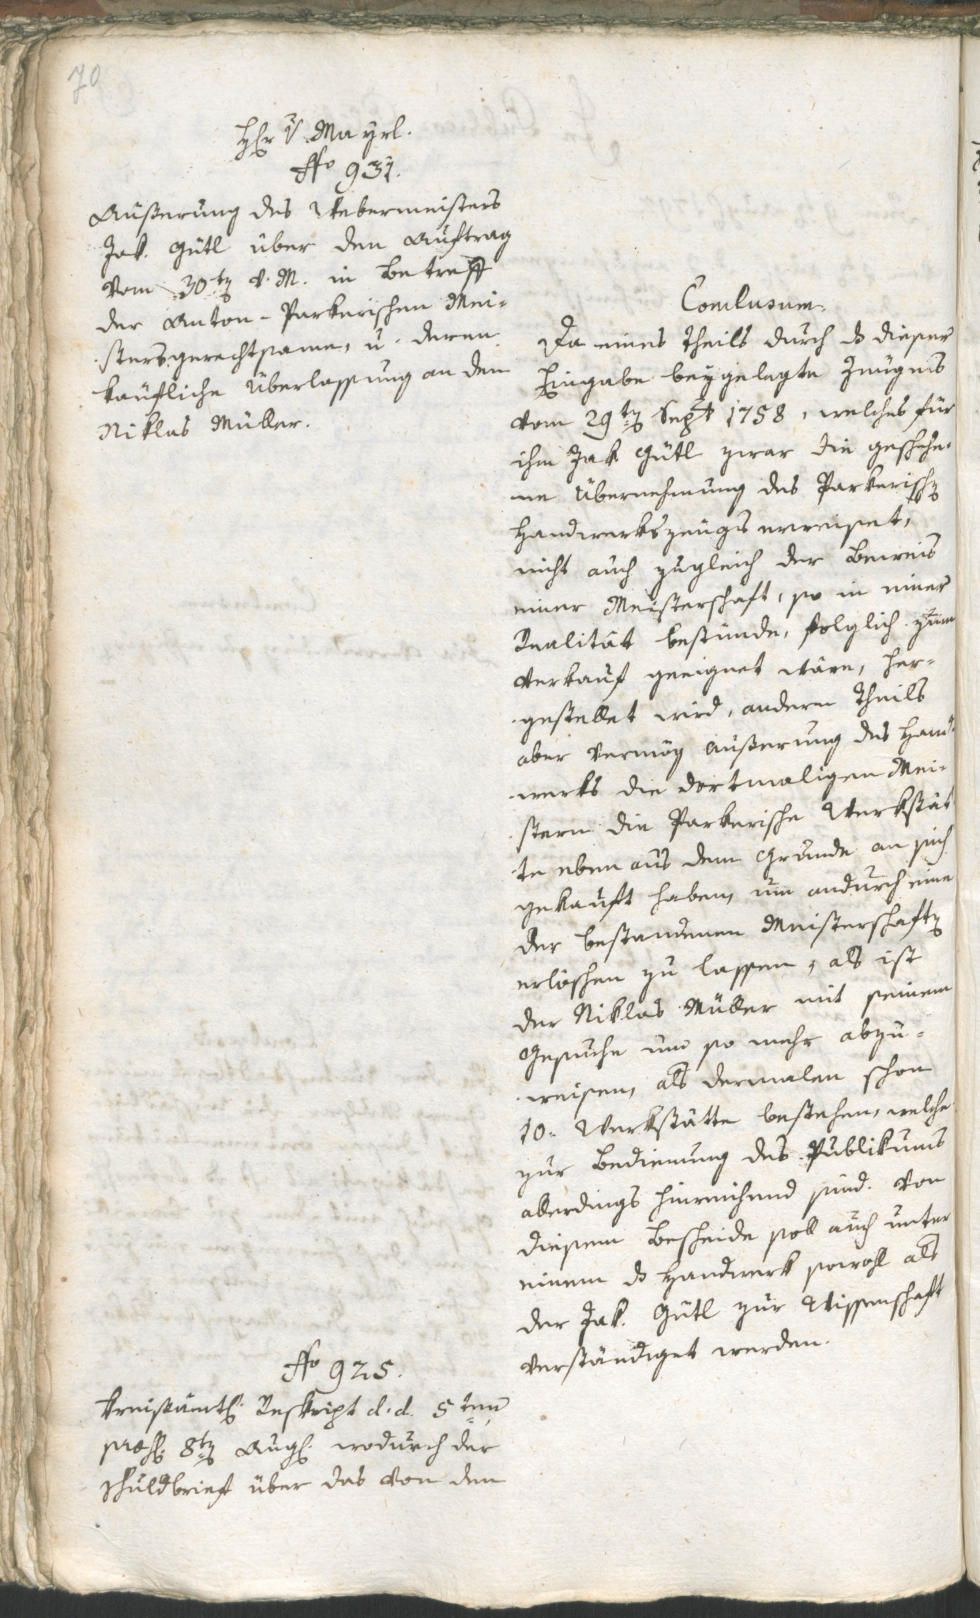 70
H[err] v. Mayrl.
Nro 931.
Äußerung des Webermeisters
Jak. Gütl über den Auftrag
vom 30ten v. M. in Betreff
der Anton-Parkerischen Mei-
stersgerechtsame, u. deren
käufliche Überlassung an den
Niklas Müller.
Conclusum.
Da eines Theils durch das dieser
Eingabe beygelegte Zeugnis
vom 29ten Sept 1758, welches für
ihn Jak Gütl zwar die geschehe-
ne Übernehmung des Parkerischen
Handwerkszeugs erweiset,
nicht auch zugleich der Beweis
einer Meisterschaft, so in einer
Realität bestünde, folglich zum
Verkauf geeignet wäre, her-
gestellet wird, anderen Theils
aber vermög Äußerung des Hand-
werks die dortmaligen Mei-
stern die Parkerische Werkstät
te eben aus dem Grunde an sich
gekauft haben, um andurch eine
der bestandenen Meisterschaften
erlöschen zu lassen, als ist
der Niklas Müller mit seinem
Gesuche um so mehr abzu-
weisen, als dermalen schon
10. Werkstätte bestehen, welche
zur Bedienung des Publikums
allerdings hinreichend sind. Von
diesem Bescheide soll auch unter
einem das Handwerk sowohl als
der Jak. Gütl zur Wissenschaft
verständiget werden.
Nro 925.
Kreisämtl. Reskript d. d. 5ten
präs. 8ten Aug. wodurch der
Schuldbrief über das von dem